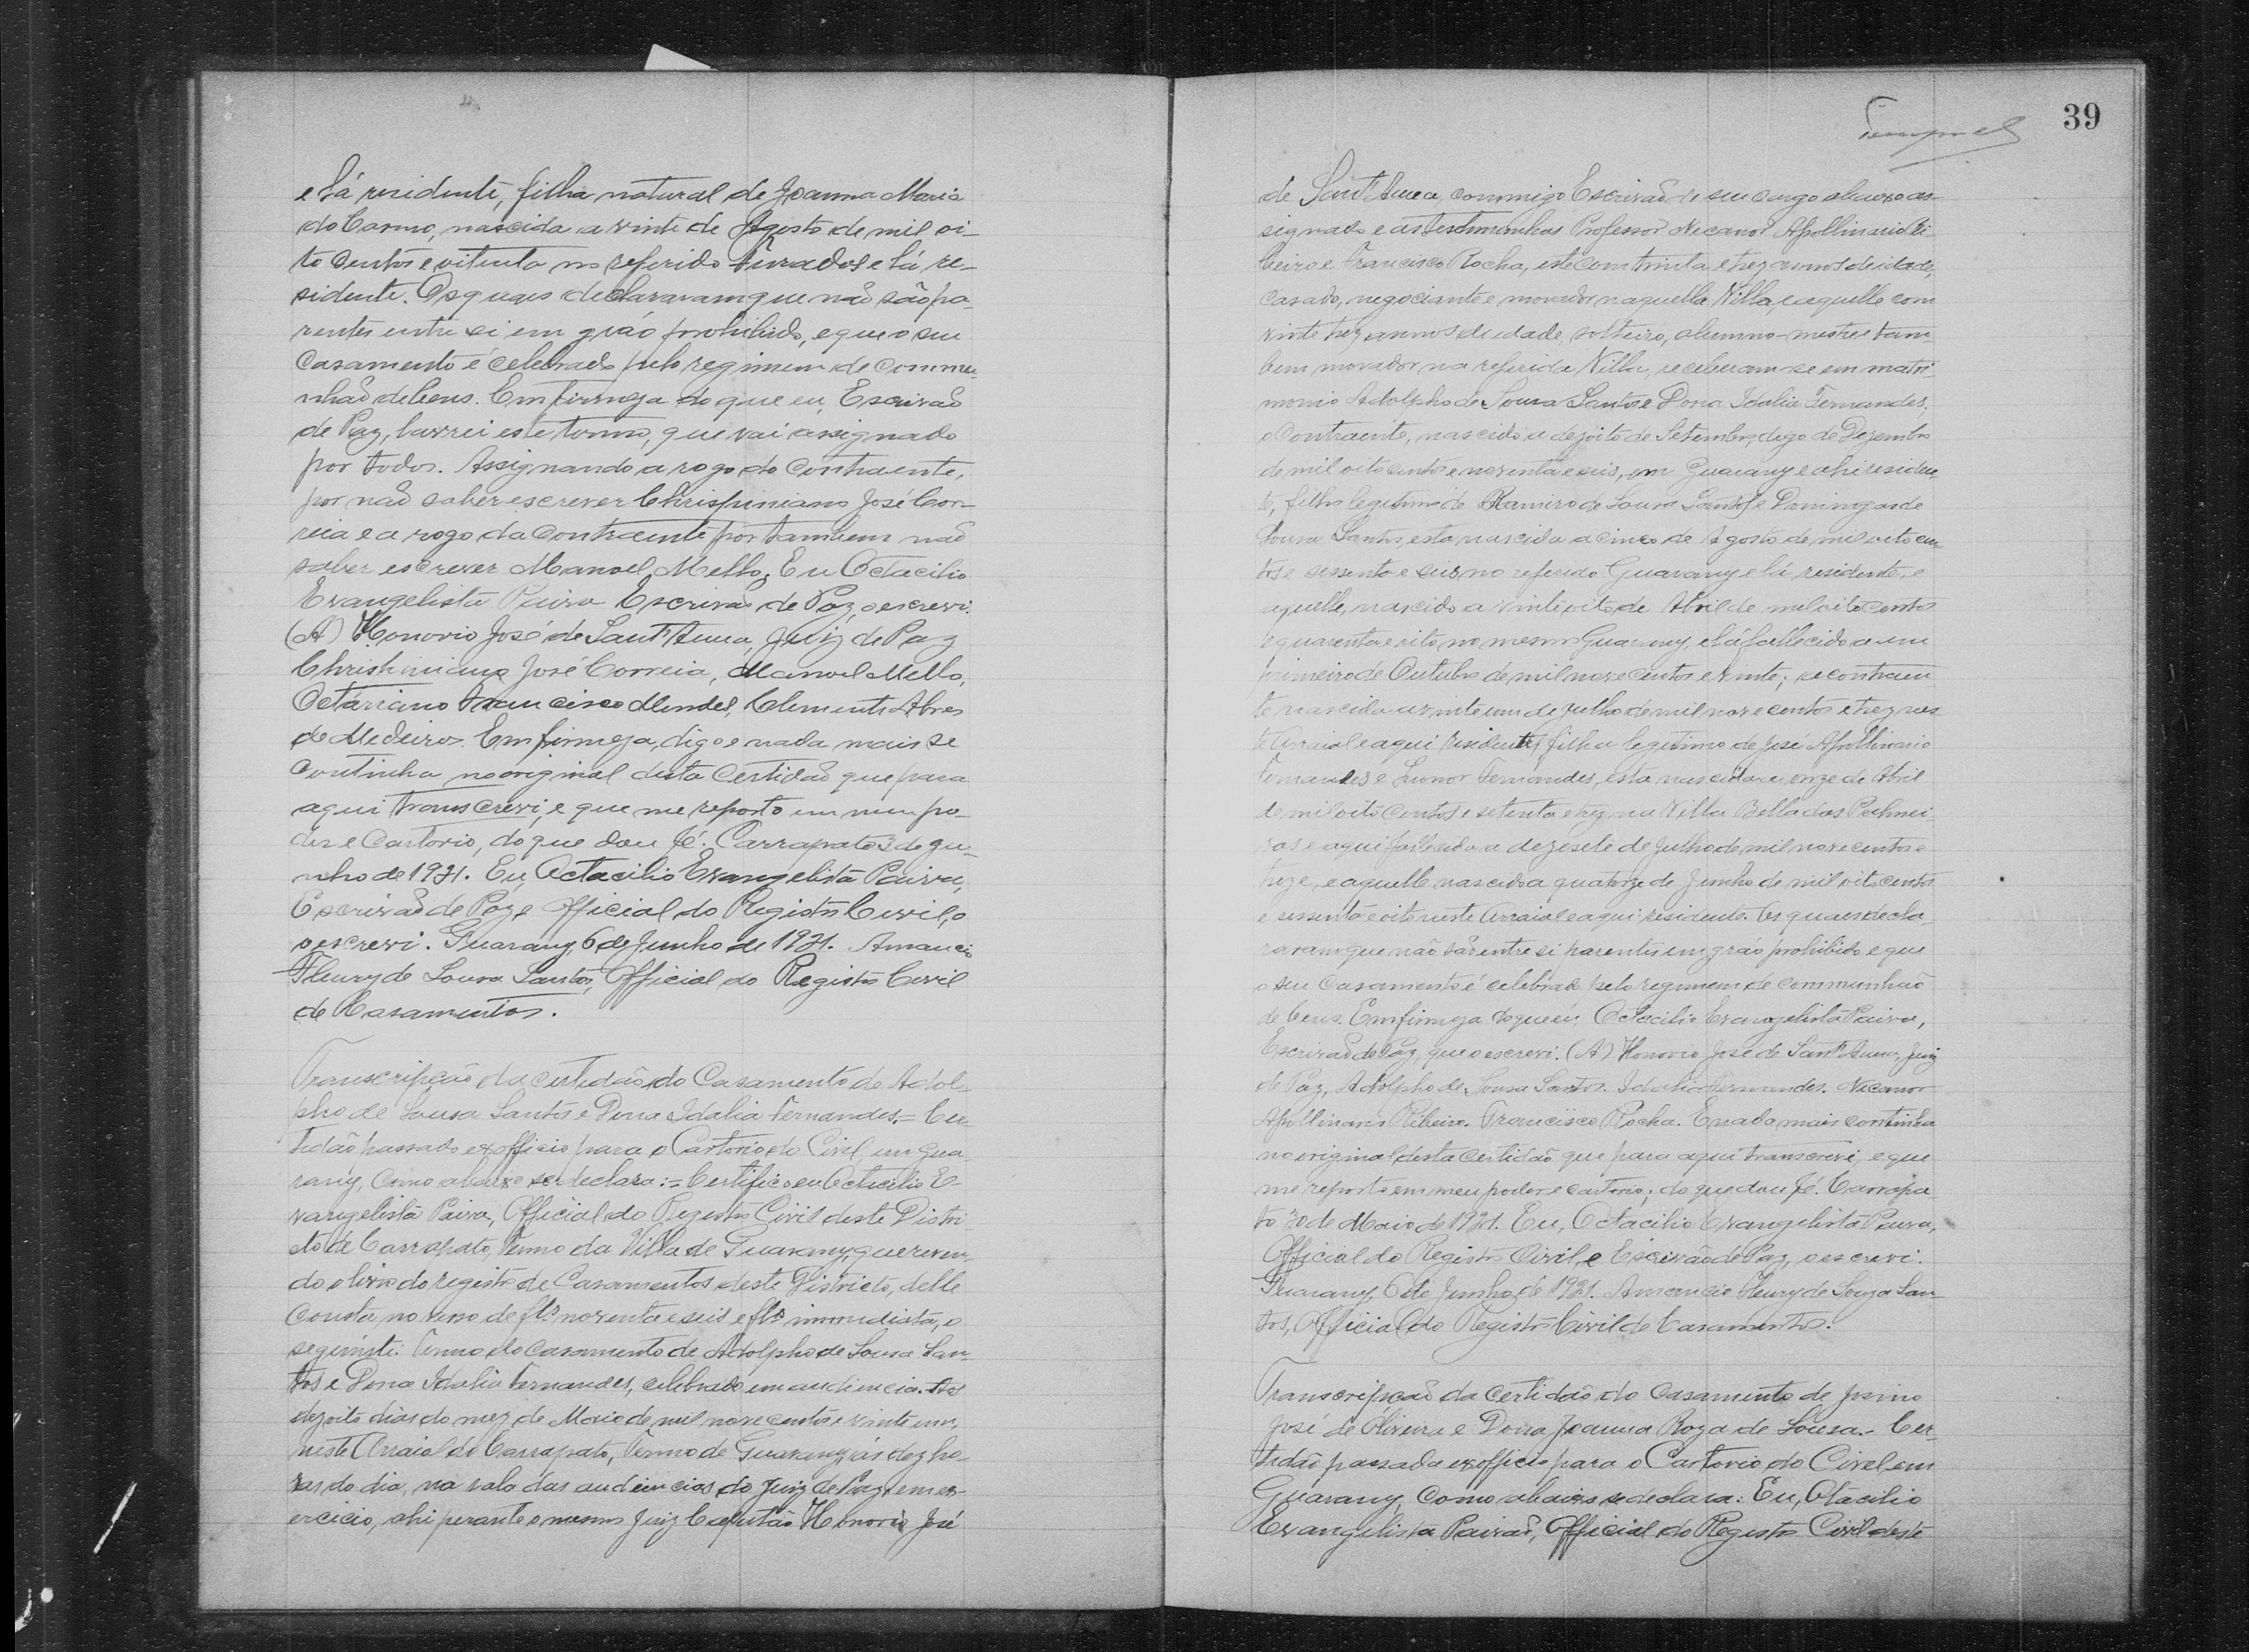 e lá residente, filha natural de Joanna Maria
do Carmo, nascida a vinte de Agosto de mil oi-
to centos e oitenta no referido Furados e lá re-
sidente. Os quaes declararam que não são pa-
rentes entre si em gráo prohibido, e que o seu
casamento é celebrado pelo regimen de commu-
nhão de bens. Em firmeza do que eu, Escrivão
de Paz, lavrei este termo, que vai assignado
por todos. Assignando a rogo do contraente,
por não saber escrever Chrispiniano José Cor-
reia e a rogo da contraente por tambem não
saber escrever Manoel Mello. Eu Octacilio
Evangelista Paiva Escrivão de Paz, o escrevi.
(A) Honorio José de Sant'Anna, Juiz de Paz
Chrispiniano José Correia, Manoel Mello,
Octaviano Francisco Mendes, Clemente Alves
de Medeiros. Em firmeza, digo e nada mais se
continha no original desta certidão que para
aqui transcrevi, e que me reporto em meu po-
der e Cartorio, do que dou fé. Carrapato 3 de ju-
nho de 1921. Eu, Octacilio Evangelista Paiva,
Escrivão de Paz e Official do Registro Civil, o
o escrevi. Guarany, 6 de Junho de 1921. Amancio
Fleury de Sousa Santos, Official do Registro Civil
de Casamentos.
Transcripção da certidão do Casamento de Adol-
pho de Sousa Santos e Dona Idalia Fernandes. = Cer-
tidão passada ex officio para o Cartorio do Civel em Gua-
rany, como abaixo se declara: = Certifico eu Octacilio E-
vangelista Paiva, Official do Registro Civil deste Distri-
cto de Carrapato, Termo da Villa de Guarany, que reven-
do o livro do registro de Casamentos deste Districto, delle
consta no verso de fls. noventa e seis e fls immediata, o
seguinte: Termo do casamento de Adolpho de Sousa San-
tos e Dona Idalia Fernandes, celebrado em audiencia. Aos
dezoito dias do mez de Maio de mil nove centos e vinte um,
neste Arraial do Carrapato, Termo de Guarany, ás dez ho-
ras do dia, na sala das audiencias do Juiz de Paz em ex-
ercicio, ahi perante o mesmo Juiz Capitão Honorio José
39
de Sant'Anna, commigo Escrivão de seu cargo abaixo as-
signado e as testemunhas Professor Nicanor Apollinario Ri-
beiro e Francisco Rocha, este com trinta e trez annos de idade,
casado, negociante e morador naquella Villa, e aquelle com
vinte trez annos de idade, solteiro, alumno-mestre tam
bem morador na referida Villa, receberam-se em matri-
monio Adolpho de Sousa Santos e Dona Idalia Fernandes,
o contraente, nascido a dezoito de Setembro, digo de Dezembro
de mil oito centos e noventa e seis, em Guarany e ahi residen-
te, filho legitimo de Ramiro de Sousa Santos e Domingas de
Sousa Santos, esta nascida a cinco de Agosto de mil oito cen-
tos e sessenta e seis no referido Guarany e lá residente, e
aquelle, nascido a vinte oito de Abril de mil oito centos
e quarenta e oito, no mesmo Guarany, e lá fallecido a um
primeiro de Outubro de mil nove centos e vinte; e a contraen
te nascida a vinte um de Julho de mil nove centos e trez nes
te Arraial e aqui residente, filha legitima de José Apollinario
Fernandes e Leonor Fernandes, esta nascida a onze de Abril
de mil oito centos e setenta e trez na Villa Bella das Palmei
ras e aqui fallecida a dezesete de Julho de mil nove centos e
treze, e aquelle nascido a quatorze de Junho de mil oito centos
e sessenta e oito neste Arraial e aqui residente. Os quaes decla-
raram que não são entre si parentes em gráo prohibido e que
o seu casamento é celebrado pelo regimen de communhão
de bens. Em firmeza do que eu, Octacilio Evangelista Paiva,
Escrivão de Paz, que o escrevi. (A) Honorio José de Sant'Anna, Juiz
de Paz, Adolpho de Sousa Santos. Idalia Fernandes. Nicanor
Apollinario Ribeiro. Francisco Rocha. E nada mais continha
no original desta certidão que para aqui transcrevi, e que
me reporto em meu poder e cartorio; do que dou fé. Carrapa
to 30 de Maio de 1921. Eu, Octacilio Evangelista Paiva,
Official do Registro Civil, e Escrivão de Paz, o escrevi.
Guarany, 6 de Junho de 1921. Amancio Fleury de Souza San-
tos, Official do Registro Civil de Casamentos.
Transcripção da certidão do casamento de Josino
José de Oliveira e Dona Joanna Roza de Sousa. - Cer-
tidão passada ex officio para o Cartorio do Civel em
Guarany, como abaixo se declara: Eu, Otacilio
Evangelista Paiva, Official do Registro Civil deste